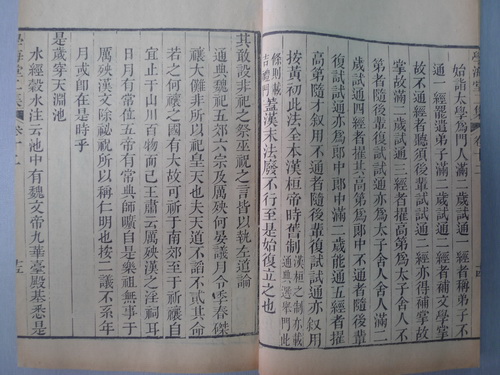 始詣太學爲門人滿一歲試通一經者稱弟子不
通一經罷遣弟子滿二歲試通二經者補文學掌
故不通經者聽須後輩試試通二經亦得補掌故
掌故滿二歲試通三經者擢高第爲太子舍人不
第者隨後輩復試試通亦爲太子舍人舍人滿二
歲試通四經者擢其高第爲郎中不通者隨後輩
復試試通亦爲郎中郎中滿二歲能通五經者擢
高第隨才叙用不通者隨後輩復試試通亦叙用
按黃初此法全本漢桓帝時舊制漢桓之制亦載通典選舉門此
條則載吉禮門蓋漢末法廢不行至是始復立之也
其敢設非祀之祭巫祝之言皆以執左道論
通典魏祀五郊六宗及厲殃何晏議月令季春傑
禳大儺非所以祀皇天也夫天道不謟不貳其命
若之何禳之國有大故可祈于南郊至于祈禳自
宜止于山川百物而已王肅云厲殃漢之淫祠耳
日月有常位五帝有常典師曠自是樂祖無事于
厲殃漢文除祕祝所以稱仁明也按二議不系年
月或卽在是時乎
是歲穿天淵池
水經穀水注云池中有魏文帝九華臺殿基悉是